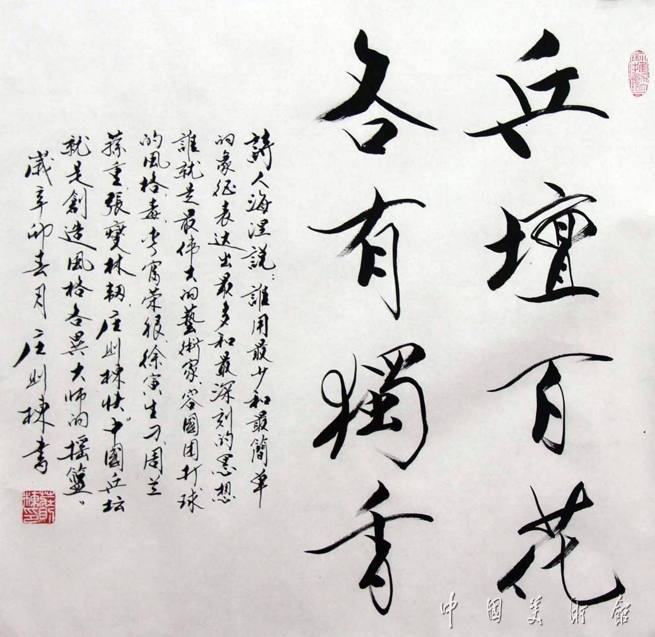 乒壇百花
各有獨香
詩人海涅説:誰用最少和最簡單
的象征表达出最多和最深刻的思想
誰就是最伟大的藝術家。容國团打球
的風格毒李富荣狠徐寅生刁周兰
蓀重張燮林韌庄则棟快中國乒坛
就是創造風格各異大师的摇篮。
歲辛卯春月庄则棟書
中國美術館